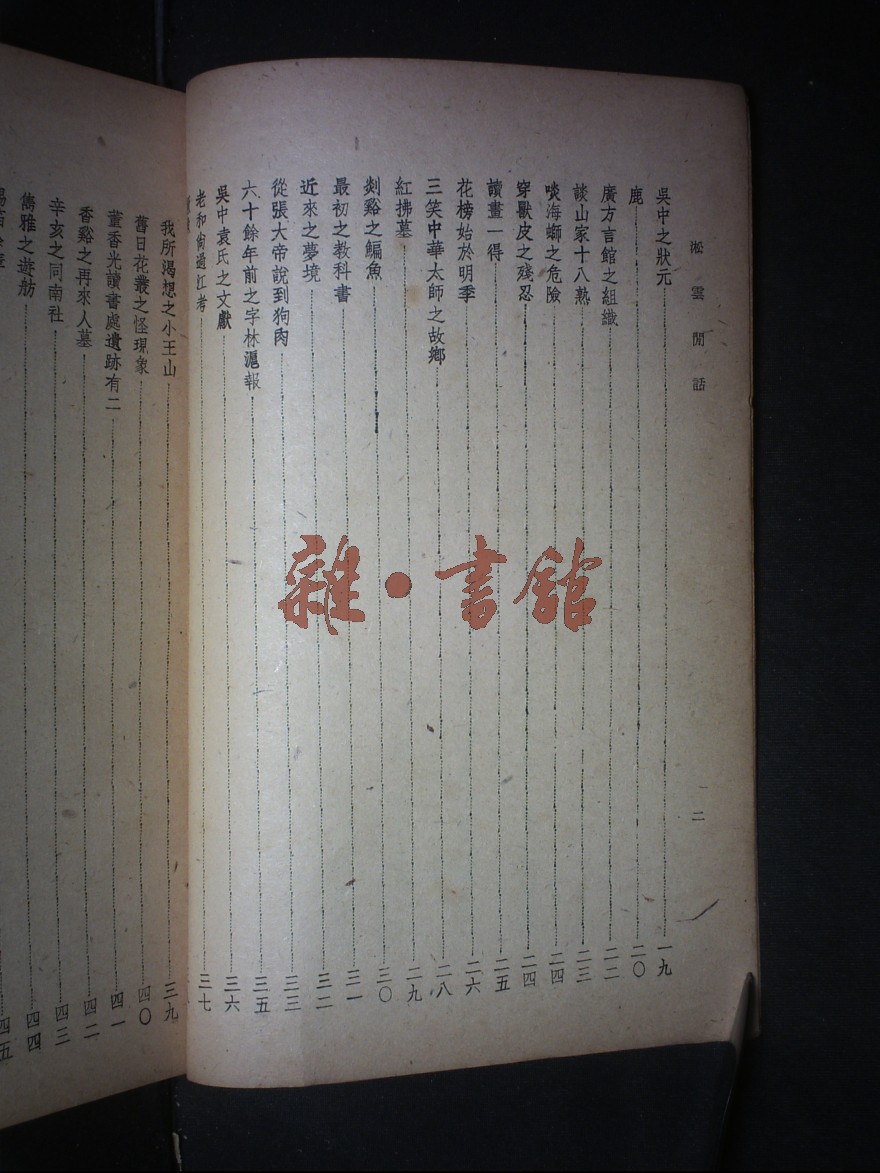 淞雲閒話
二
吳中之狀元 一九
鹿 二〇
廣方言館之組織 二二
談山家十八熟 二三
啖海螄之危險 二四
穿獸皮之殘忍 二四
讀畫一得 二五
花榜始於明季 二六
三笑中華太師之故鄉 二八
紅拂墓 二九
剡谿之鯿魚 三〇
最初之教科書 三一
近來之夢境 三二
從張大帝說到狗肉 三三
六十餘年前之字林滬報 三五
吳中袁氏之文獻 三六
老和尙過江考 三七
我所渴想之小王山 三九
舊日花叢之怪現象 四〇
董香光讀書處遺跡有二 四一
香谿之再來人墓 四二
辛亥之同南社 四三
雋雅之遊舫 四四
四五
雜·書館